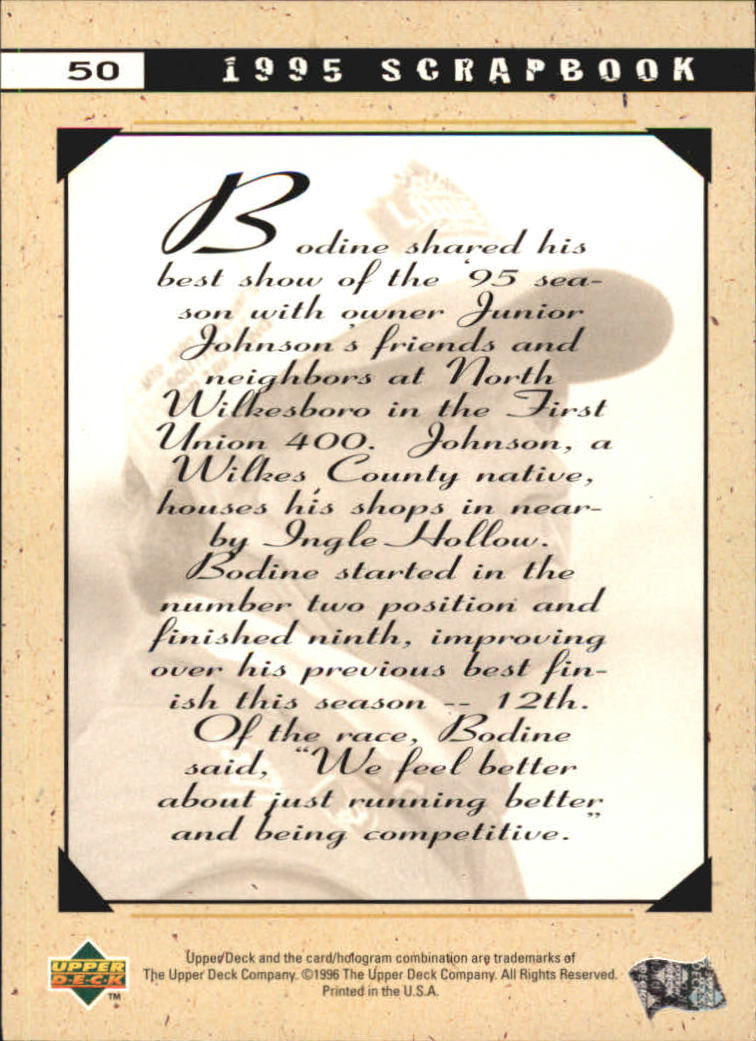 50 1995 SCRAPBOOK
Bodine shared his
best show of the '95 sea-
son with owner Junior
Johnson's friends and
neighbors at North
Wilkesboro in the First
Union 400. Johnson, a
Wilkes County native,
houses his shops in near-
by Ingle Hollow.
Bodine started in the
number two position and
finished ninth, improving
over his previous best fin-
ish this season -- 12th.
Of the race, Bodine
said, "We feel better
about just running better
and being competitive."
UPPER
DECK
TM
Upper Deck and the card/hologram combination are trademarks of
The Upper Deck Company. ©1996 The Upper Deck Company. All Rights Reserved.
Printed in the U.S.A.